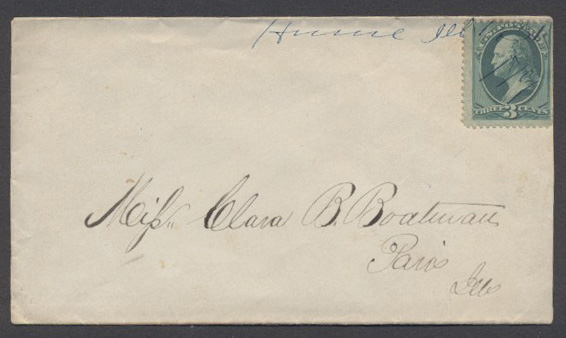 Hume Ills
U.S. POSTAGE
THREE 3 CENTS
Miss Clara B. Boatman
Paris
Ills